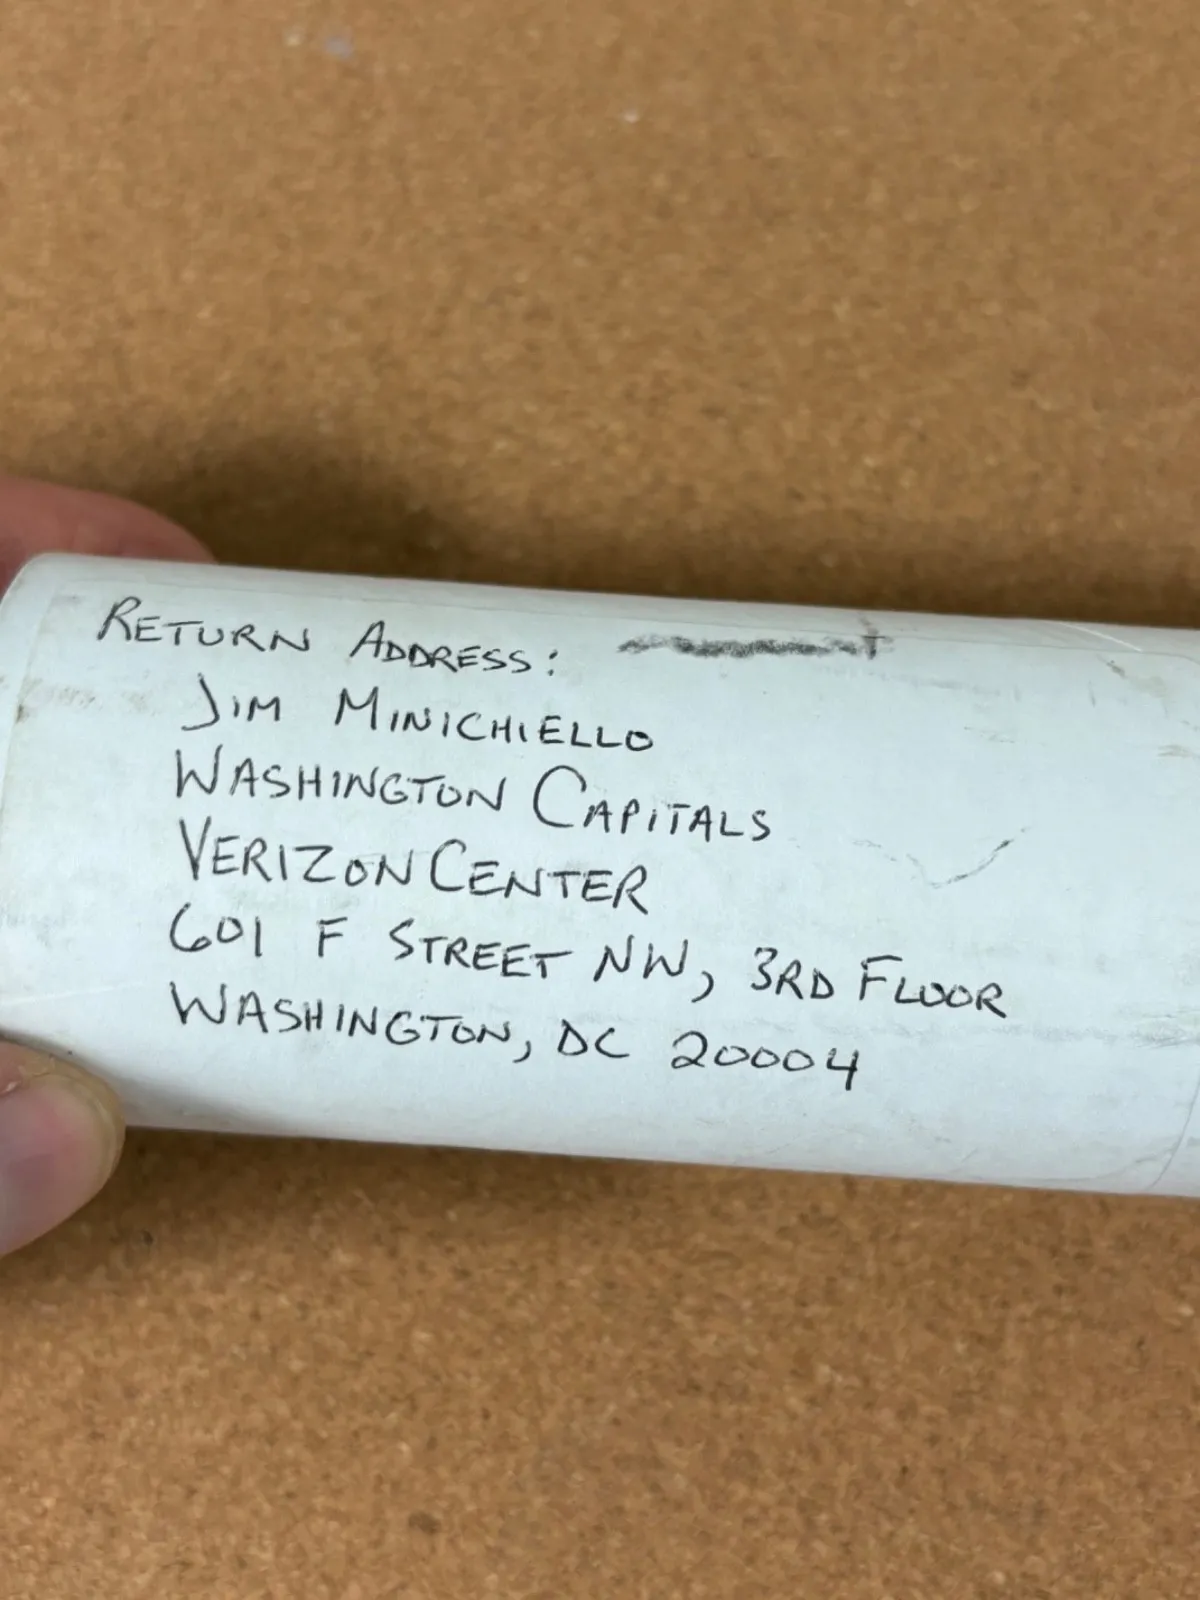 RETURN ADDRESS:
JIM MINICHIELLO
WASHINGTON CAPITALS
VERIZON CENTER
601 F STREET NW, 3RD FLOOR
WASHINGTON, DC 20004